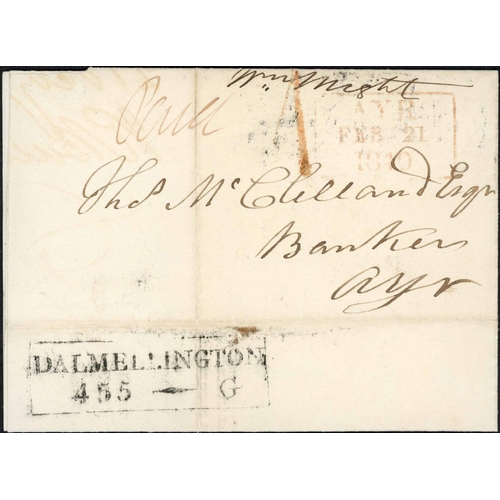 Wm Wright
Paid
1
AYR
FEB 21
1840
Thos McClelland Esqr
Banker
Ayr
DALMELLINGTON
455 — G